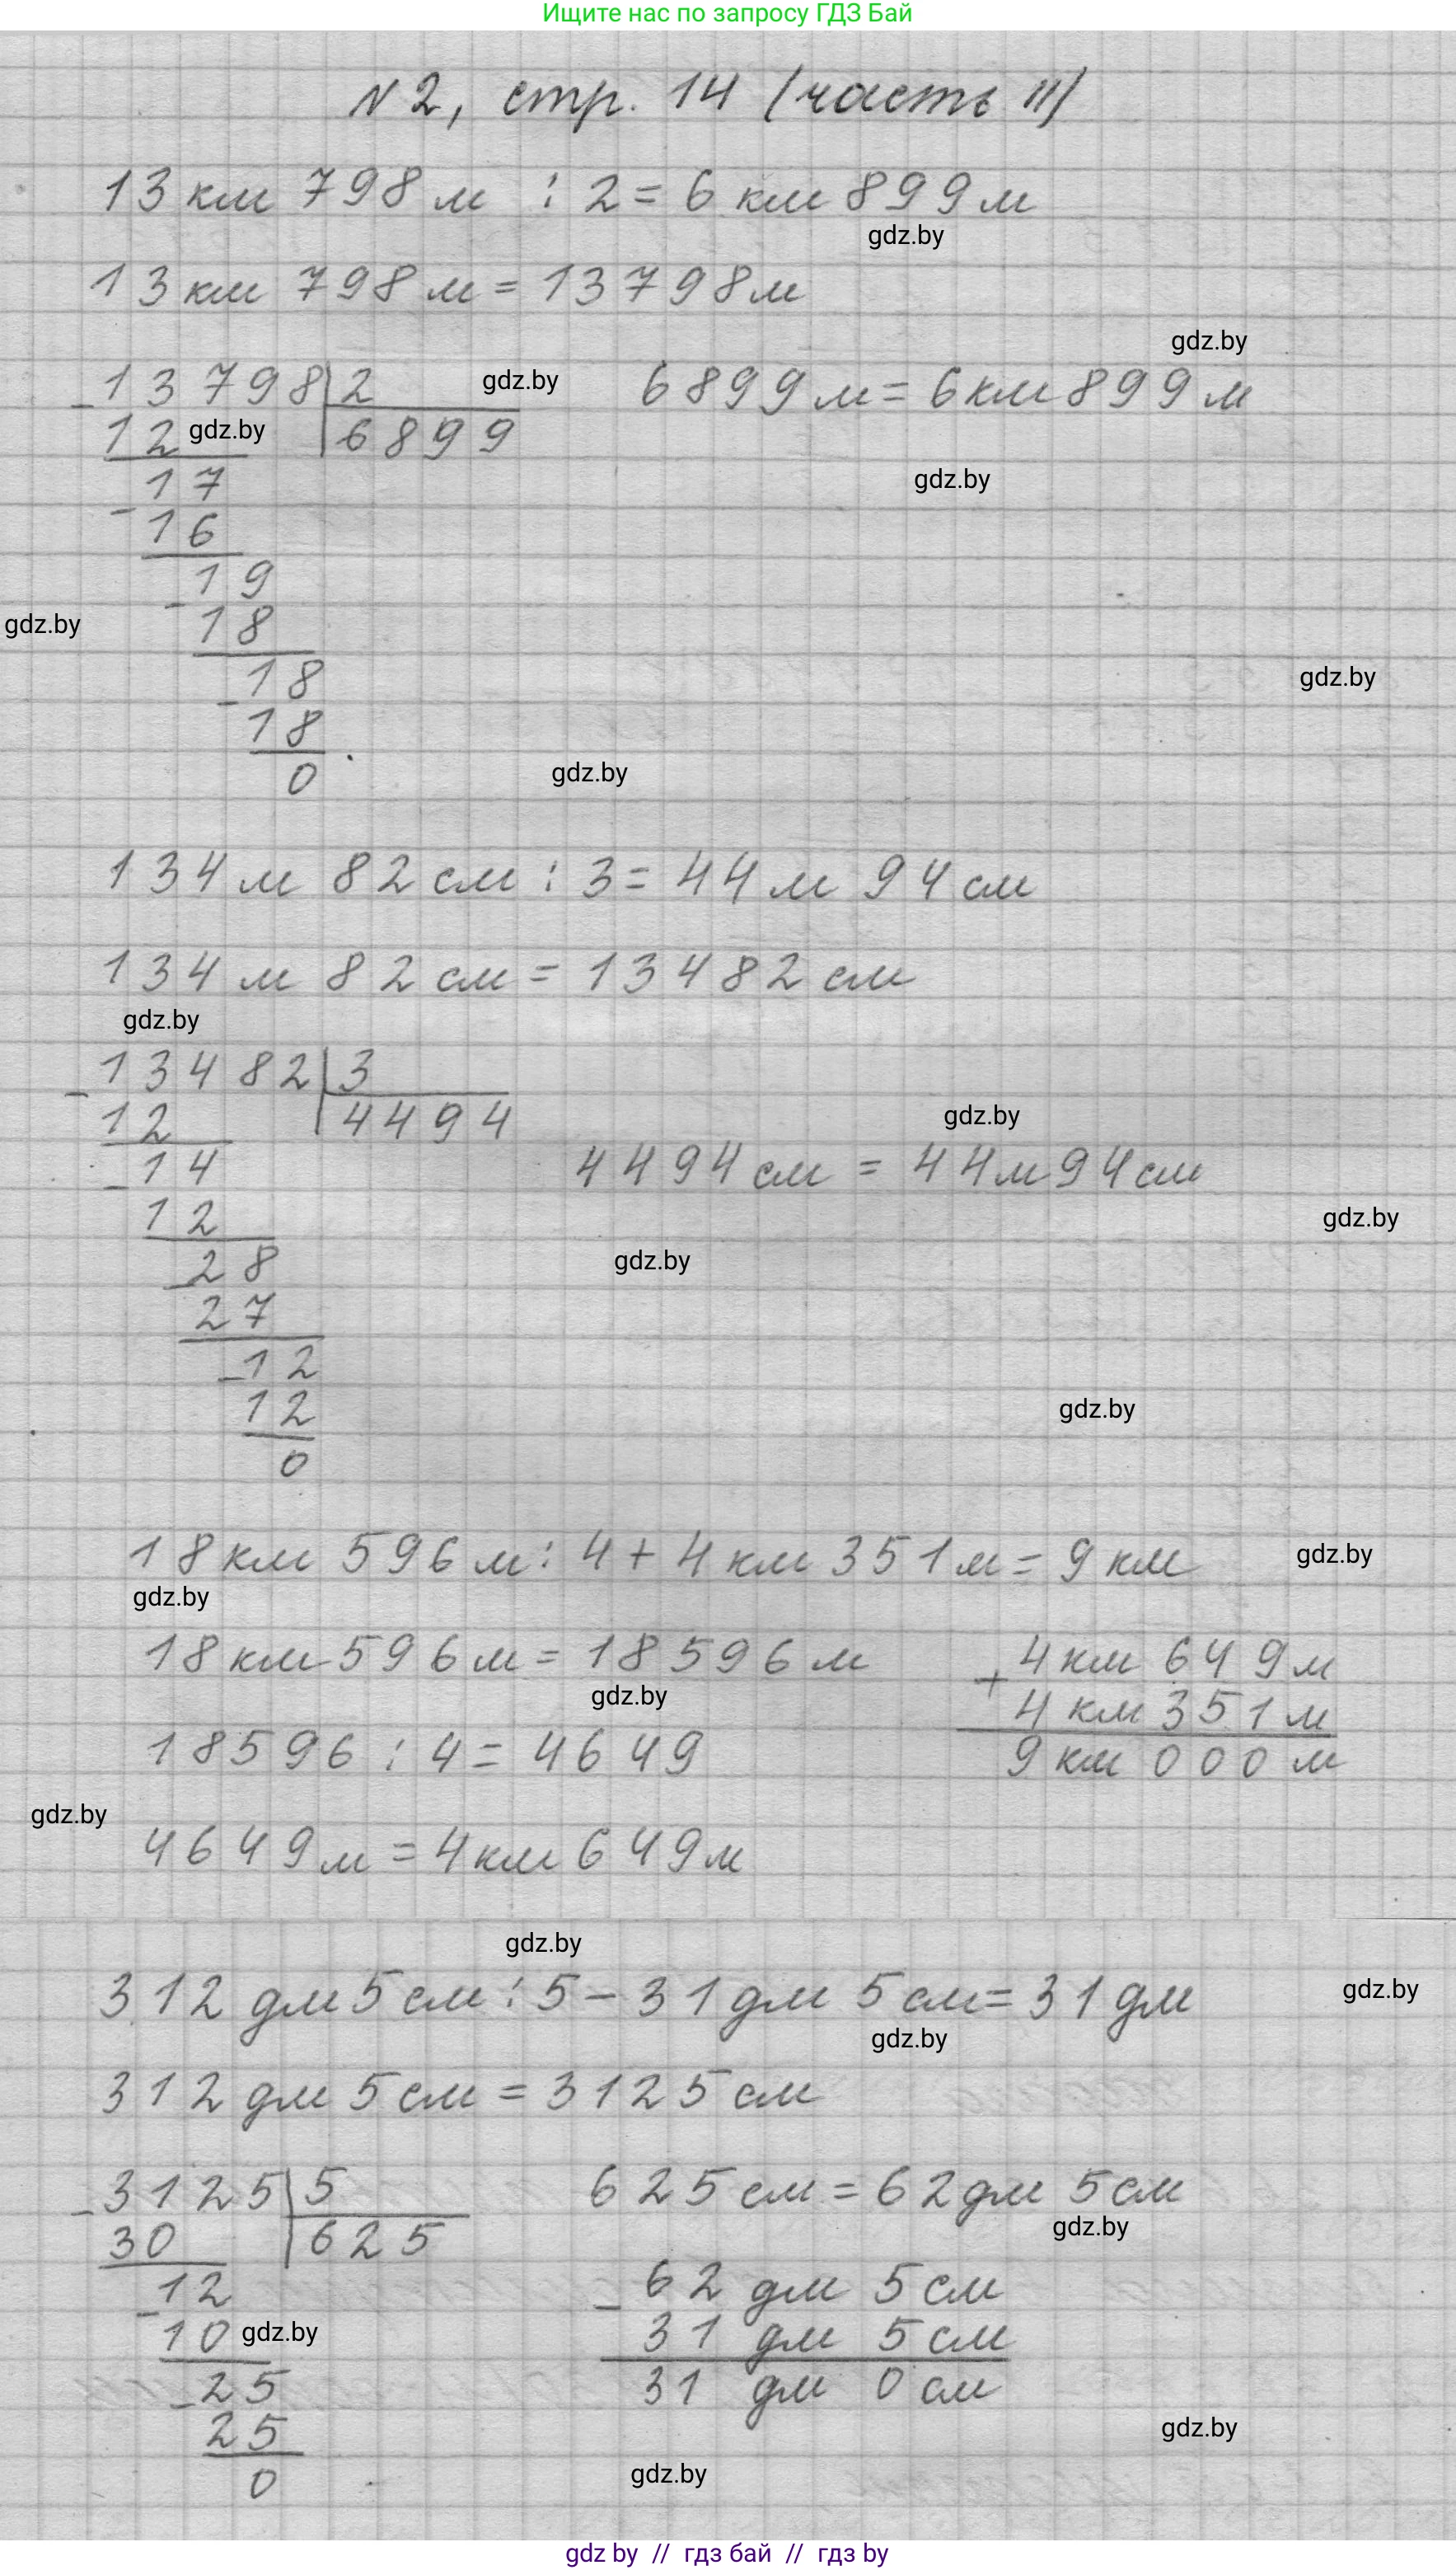 Ищите нас по запросу ГДЗ Бай
№2, стр. 14 (часть II)
13 км 798 м : 2 = 6 км 899 м
gdz.by
13 км 798 м = 13798 м
gdz.by
- 13798 | 2 gdz.by 6899 м = 6 км 899 м
12 gdz.by 6899
gdz.by
- 17
16
- 19
gdz.by
18
gdz.by
- 18
18
gdz.by
0
134 м 82 см : 3 = 44 м 94 см
134 м 82 см = 13482 см
gdz.by
- 13482 | 3
12 4494 gdz.by
- 14 4494 см = 44 м 94 см
12 gdz.by
- 28 gdz.by
27
- 12
12 gdz.by
0
18 км 596 м : 4 + 4 км 351 м = 9 км gdz.by
gdz.by
18 км 596 м = 18596 м + 4 км 649 м
gdz.by 4 км 351 м
18596 : 4 = 4649 9 км 000 м
gdz.by
4649 м = 4 км 649 м
gdz.by
312 дм 5 см : 5 - 31 дм 5 см = 31 дм gdz.by
gdz.by
312 дм 5 см = 3125 см
- 3125 | 5 625 см = 62 дм 5 см
30 625 gdz.by
- 12 - 62 дм 5 см
10 gdz.by 31 дм 5 см
- 25 31 дм 0 см
25 gdz.by
0 gdz.by
gdz by // гдз бай // гдз by